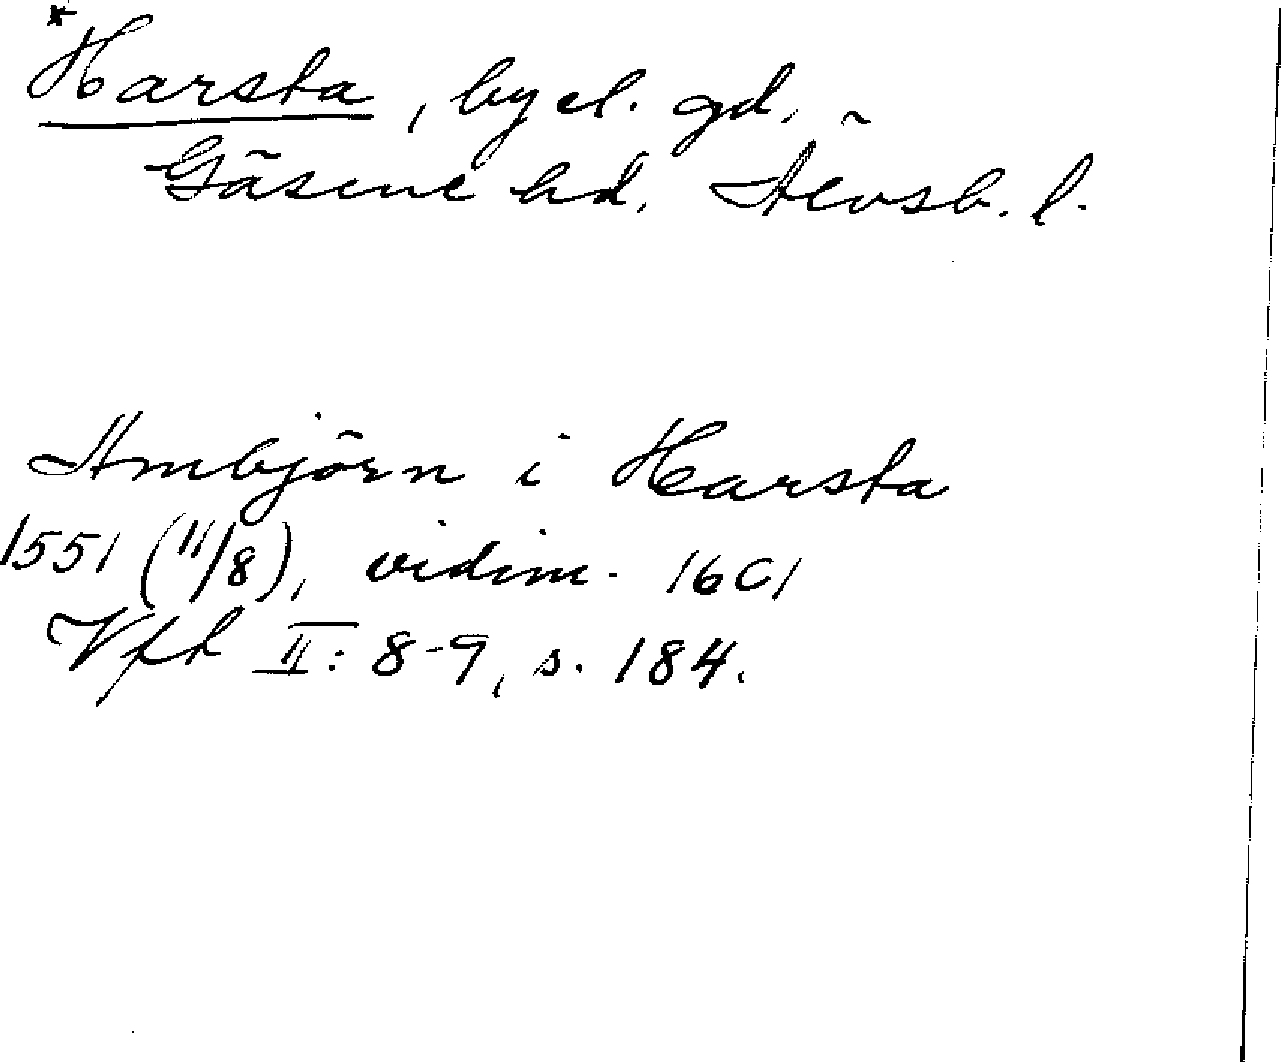 *Harsta, by el. gd.
Gäsene hd. Älvsb. l.
Ambjörn i Harsta
1551 (11/8), vidim. 1601
Vfh II: 8-9, s. 184.